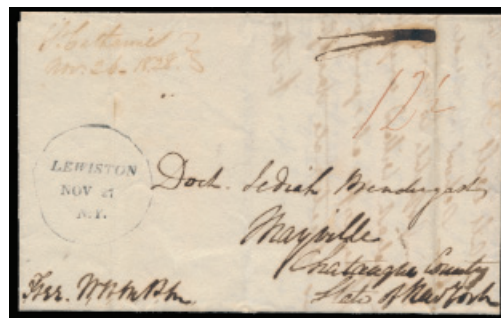 St Catharines
Nov. 26. 1828
12½
LEWISTON
NOV 27
N.Y.
Doct. Jediah Prendergast
Mayville
Chatauque County
State of New York